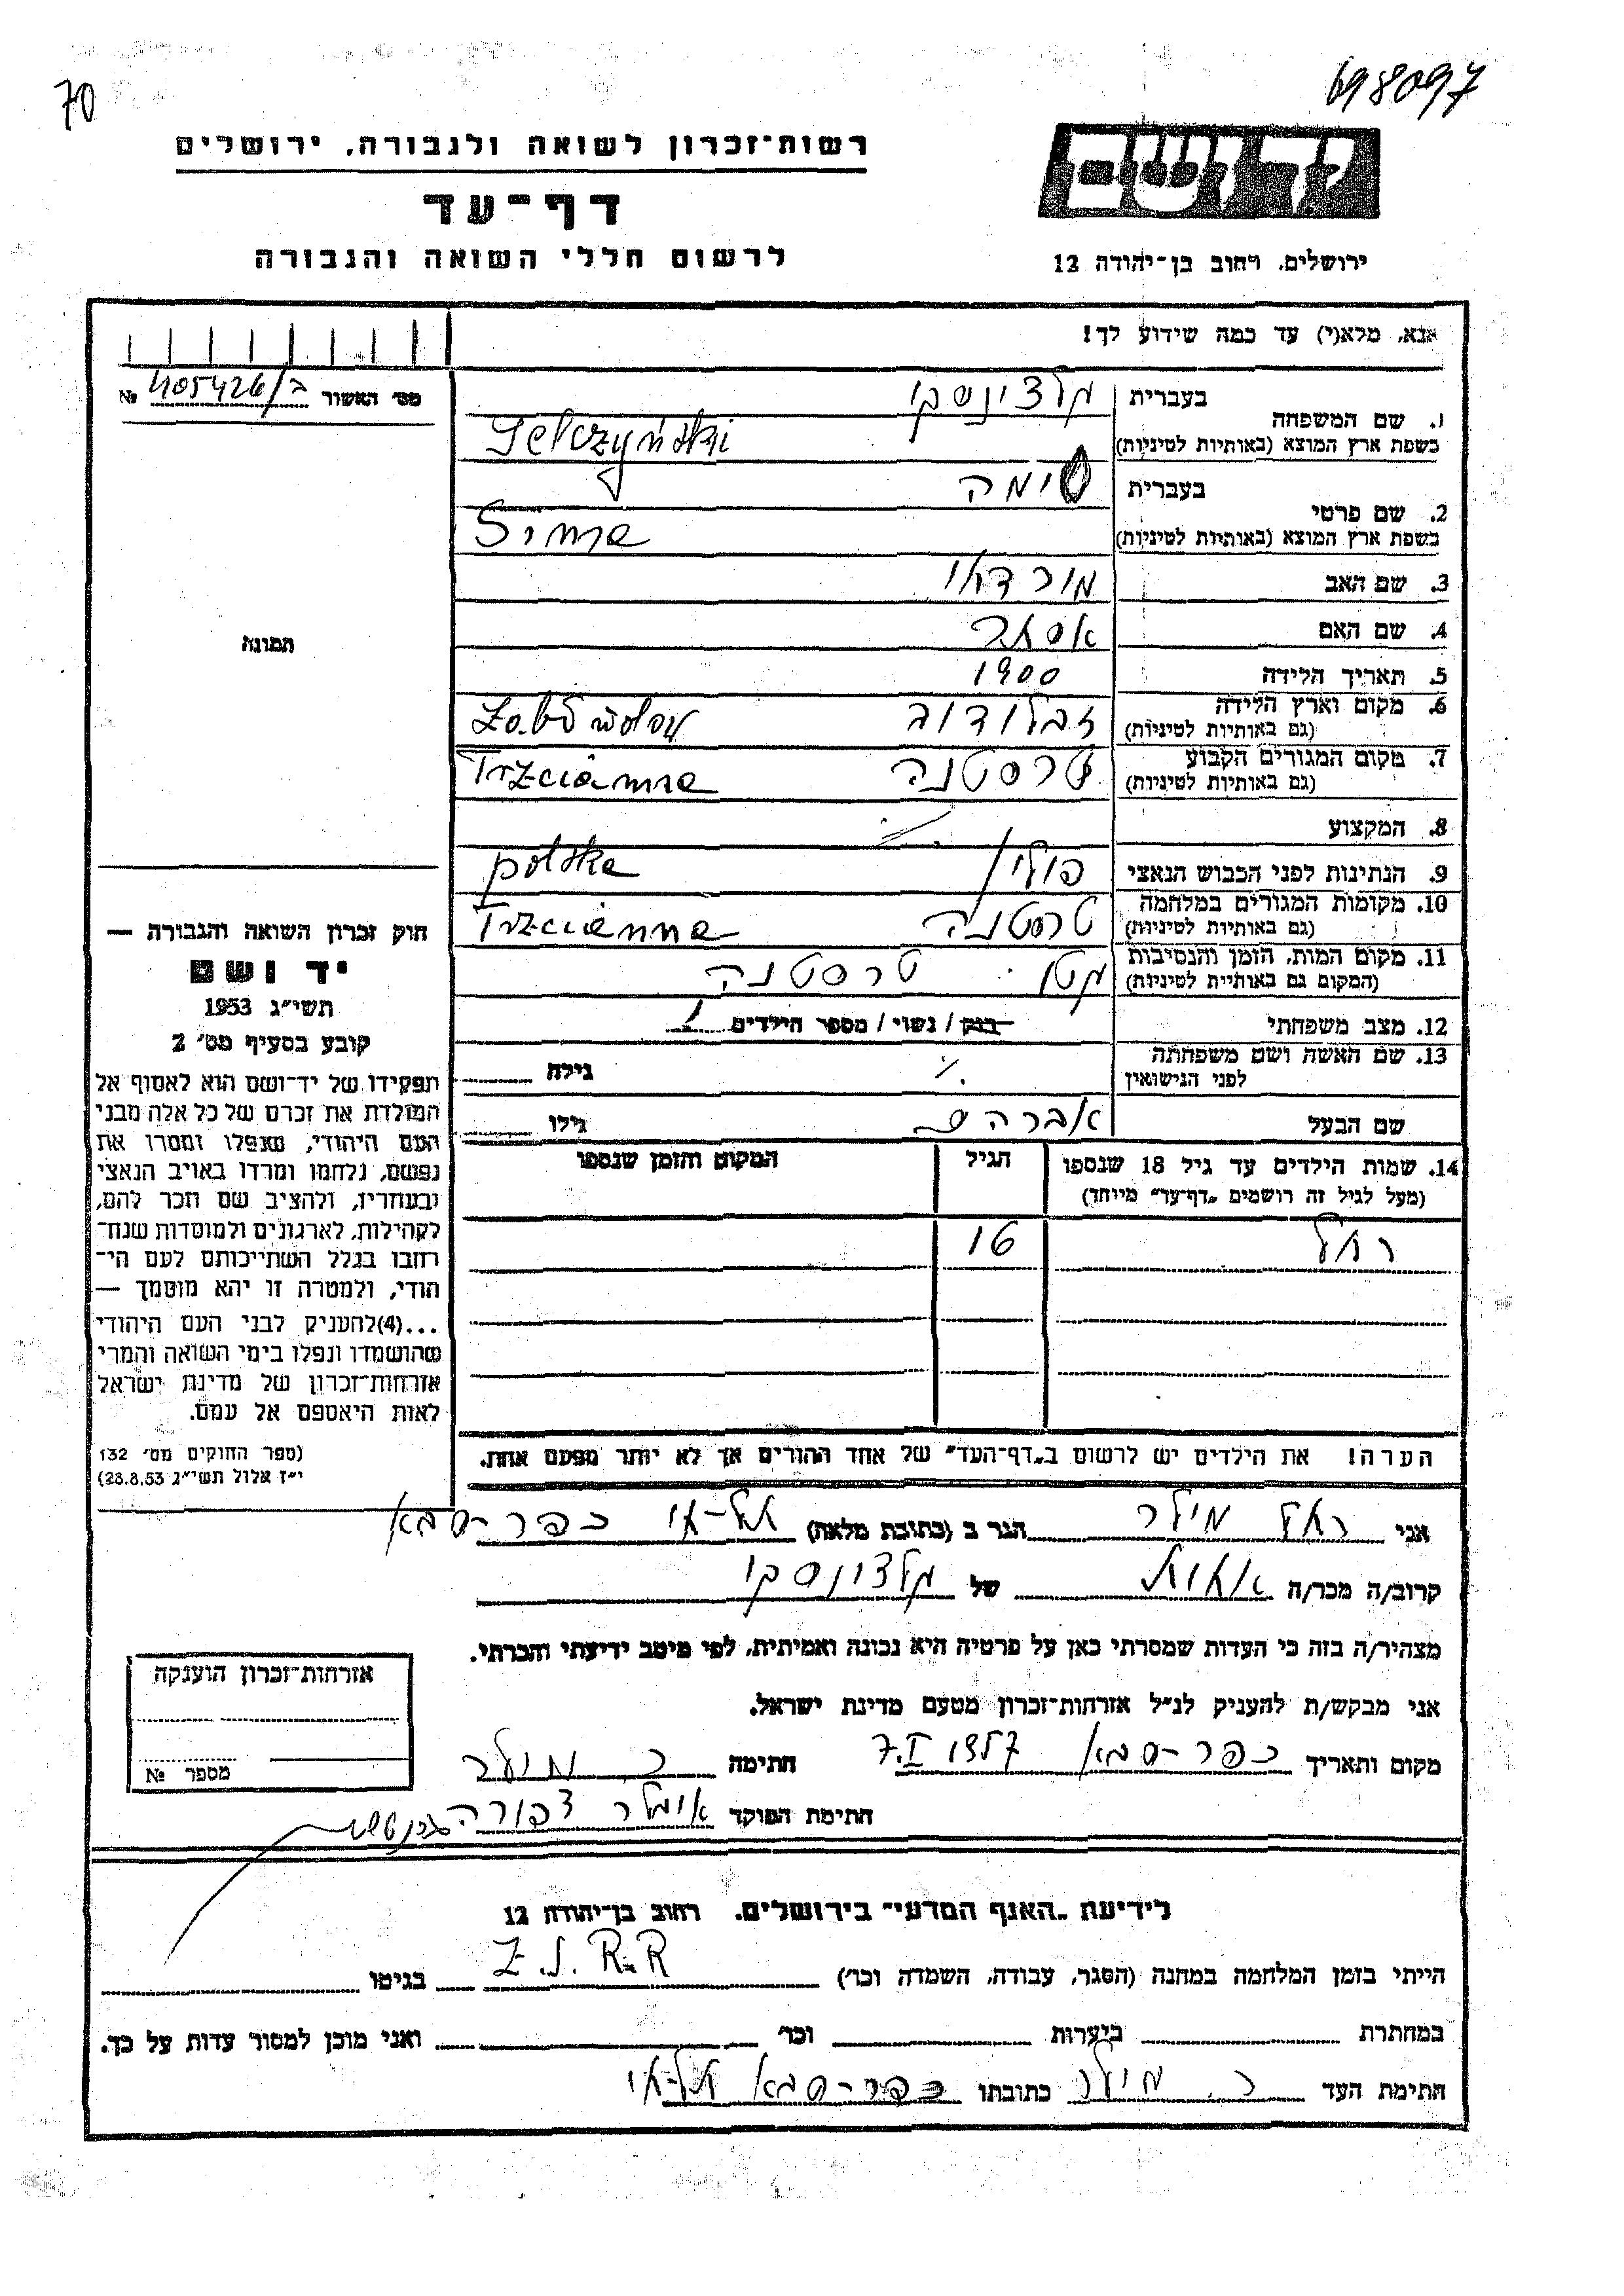 70
698097
רשות־זכרון לשואה ולגבורה, ירושלים
דף־עד
לרשום חללי השואה והגבורה
יד ושם
ירושלים, רחוב בן־יהודה 12
אנא, מלא(י) עד כמה שידוע לך!
מס׳ האשור № 405426/ב
1. שם המשפחה
בעברית
בשפת ארץ המוצא (באותיות לטיניות)
2. שם פרטי
בעברית סימה
בשפת ארץ המוצא (באותיות לטיניות) Sima
3. שם האב מורדכי
4. שם האם אסתר
5. תאריך הלידה 1900
6. מקום וארץ הלידה זבלודוב
(גם באותיות לטיניות)
7. מקום המגורים הקבוע טרסטנה Trzcianna
(גם באותיות לטיניות)
8. המקצוע
9. הנתינות לפני הכבוש הנאצי פולין polska
10. מקומות המגורים במלחמה טרסטנה Trzcianna
(גם באותיות לטיניות)
11. מקום המות, הזמן והנסיבות טרסטנה
(המקום גם באותיות לטיניות)
12. מצב משפחתי בנק / נשוי / מספר הילדים 1
13. שם האשה ושם משפחתה
לפני הנישואין
גילה
שם הבעל אברהם גילו
14. שמות הילדים עד גיל 18 שנספו
(מעל לגיל זה רושמים „דף־עד” מיוחד)
הגיל
המקום והזמן שנספו
רחל 16
הערה! את הילדים יש לרשום ב„דף־העד” של אחד ההורים אך לא יותר מפעם אחת.
התמונה
חוק זכרון השואה והגבורה —
יד ושם
תשי״ג 1953
קובע בסעיף מס׳ 2
תפקידו של יד־ושם הוא לאסוף אל
המולדת את זכרם של כל אלה מבני
העם היהודי, שנפלו ומסרו את
נפשם, נלחמו ומרדו באויב הנאצי
ובעוזריו, ולהציב שם וזכר להם,
לקהילות, לארגונים ולמוסדות שנח־
רחבו בגלל השתייכותם לעם הי־
הודי, ולמטרה זו יהא מוסמך —
...(4)להעניק לבני העם היהודי
שהושמדו ונפלו בימי השואה והמרי
אזרחות־זכרון של מדינת ישראל
לאות היאספם אל עמם.
(ספר החוקים מס׳ 132
י״ז אלול תשי״ג 28.8.53)
אני רחל מילר הגר ב (כתובת מלאה) תל-חי כפר-סבא
קרוב/ה מכר/ה אחות של
מצהיר/ה בזה כי העדות שמסרתי כאן על פרטיה היא נכונה ואמיתית, לפי מיטב ידיעתי והכרתי.
אני מבקש/ת להעניק לנ״ל אזרחות־זכרון מטעם מדינת ישראל.
מקום ותאריך כפר-סבא 7.I 1957 חתימה ר. מילר
חתימת הפוקד צפורה
אזרחות־זכרון הוענקה
מספר №
לידיעת „האגף המדעי” בירושלים, רחוב בן־יהודה 12
הייתי בזמן המלחמה במחנה (הסגר, עבודה, השמדה וכו׳) Z.S.R.R בגיטו
במחתרת ביערות וכו׳ ואני מוכן למסור עדות על כך.
חתימת העד ר. מילר כתובתו כפר-סבא תל-חי